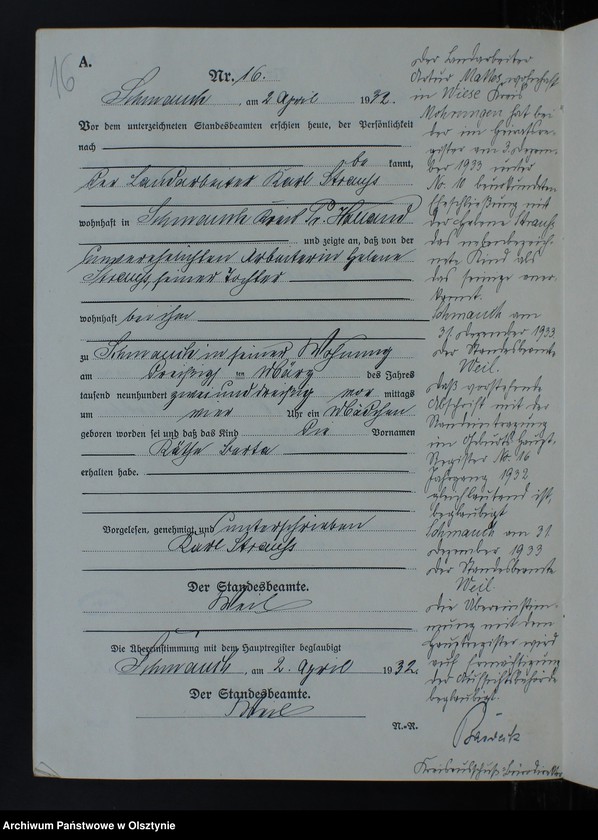 16
A.
Nr. 16.
Schmauch, am 2 April 1932.
Vor dem unterzeichneten Standesbeamten erschien heute, der Persönlichkeit
nach
be kannt,
der Landarbeiter Karl Strauß
wohnhaft in Schmauch Kreis Pr. Holland
und zeigte an, daß von der
unverehelichten Arbeiterin Helene
Strauß, seiner Tochter
wohnhaft bei ihm
zu Schmauch in seiner Wohnung
am dreißigsten März des Jahres
tausend neunhundert zweiunddreißig vor mittags
um vier Uhr ein Mädchen
geboren worden sei und daß das Kind die Vornamen
Käthe Berta
erhalten habe.
Vorgelesen, genehmigt und unterschrieben
Karl Strauss
Der Standesbeamte.
Weil
Die Übereinstimmung mit dem Hauptregister beglaubigt
Schmauch, am 2. April 1932.
Der Standesbeamte.
Weil
N.-R.
Der Landarbeiter
Artur Mattes, wohnhaft
in Wiese Kreis
Mohrungen hat bei
der im Heiratsre-
gister am 31. Dezem-
ber 1933 unter
No. 10 beurkundeten
Eheschließung mit
der Helene Strauß
das nebenbezeich-
nete Kind als
das seinige aner-
kannt.
Schmauch am
31. Dezember 1933.
Der Standesbeamte
Weil.
Daß vorstehende
Abschrift mit der
Randeintragung
im Geburts Haupt-
Register No. 16
Jahrgang 1932
gleichlautend ist,
beglaubigt
Schmauch am 31
Dezember 1933
Der Standesbeamte
Weil
Die Übereinstim-
mung mit dem
Hauptregister wird
nach Ermächtigung
der Aufsichtsbehörde
beglaubigt.
Archiwum Państwowe w Olsztynie